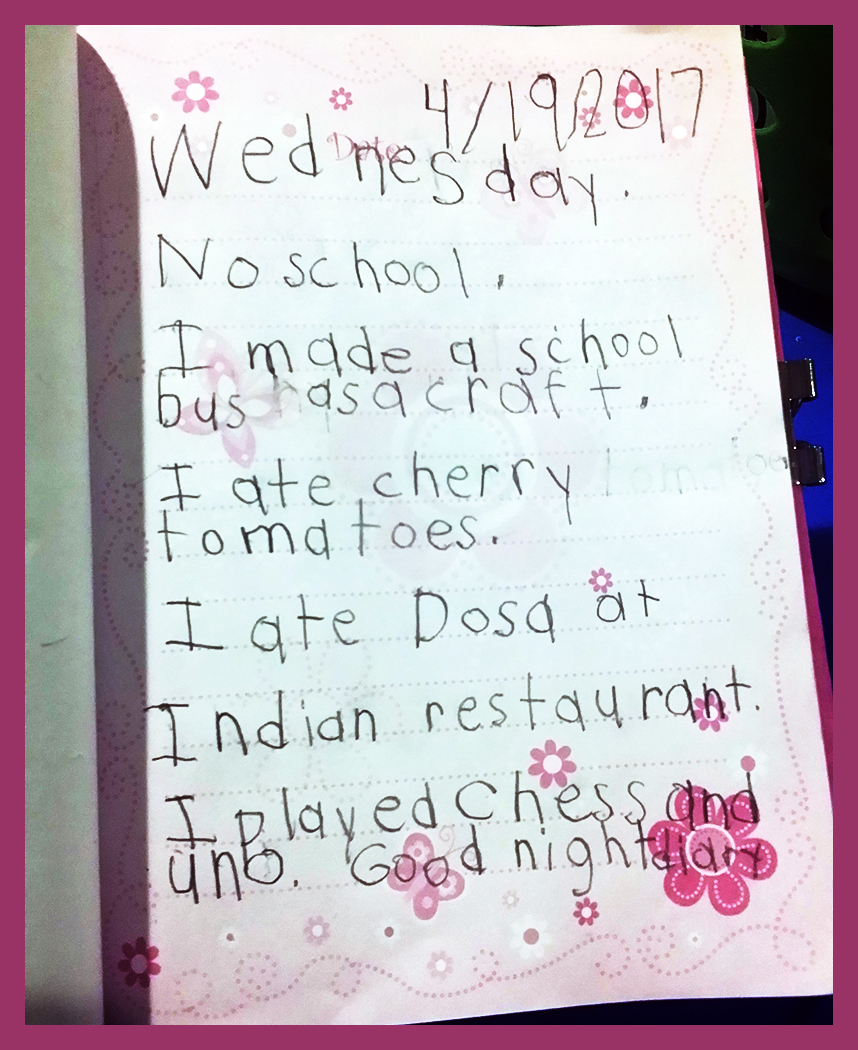 4/19/2017
Date
Wednesday.
No school.
I made a school
bus as a craft.
I ate cherry
tomatoes.
I ate Dosa at
Indian restaurant.
I played Chess and
uno. Good night diary